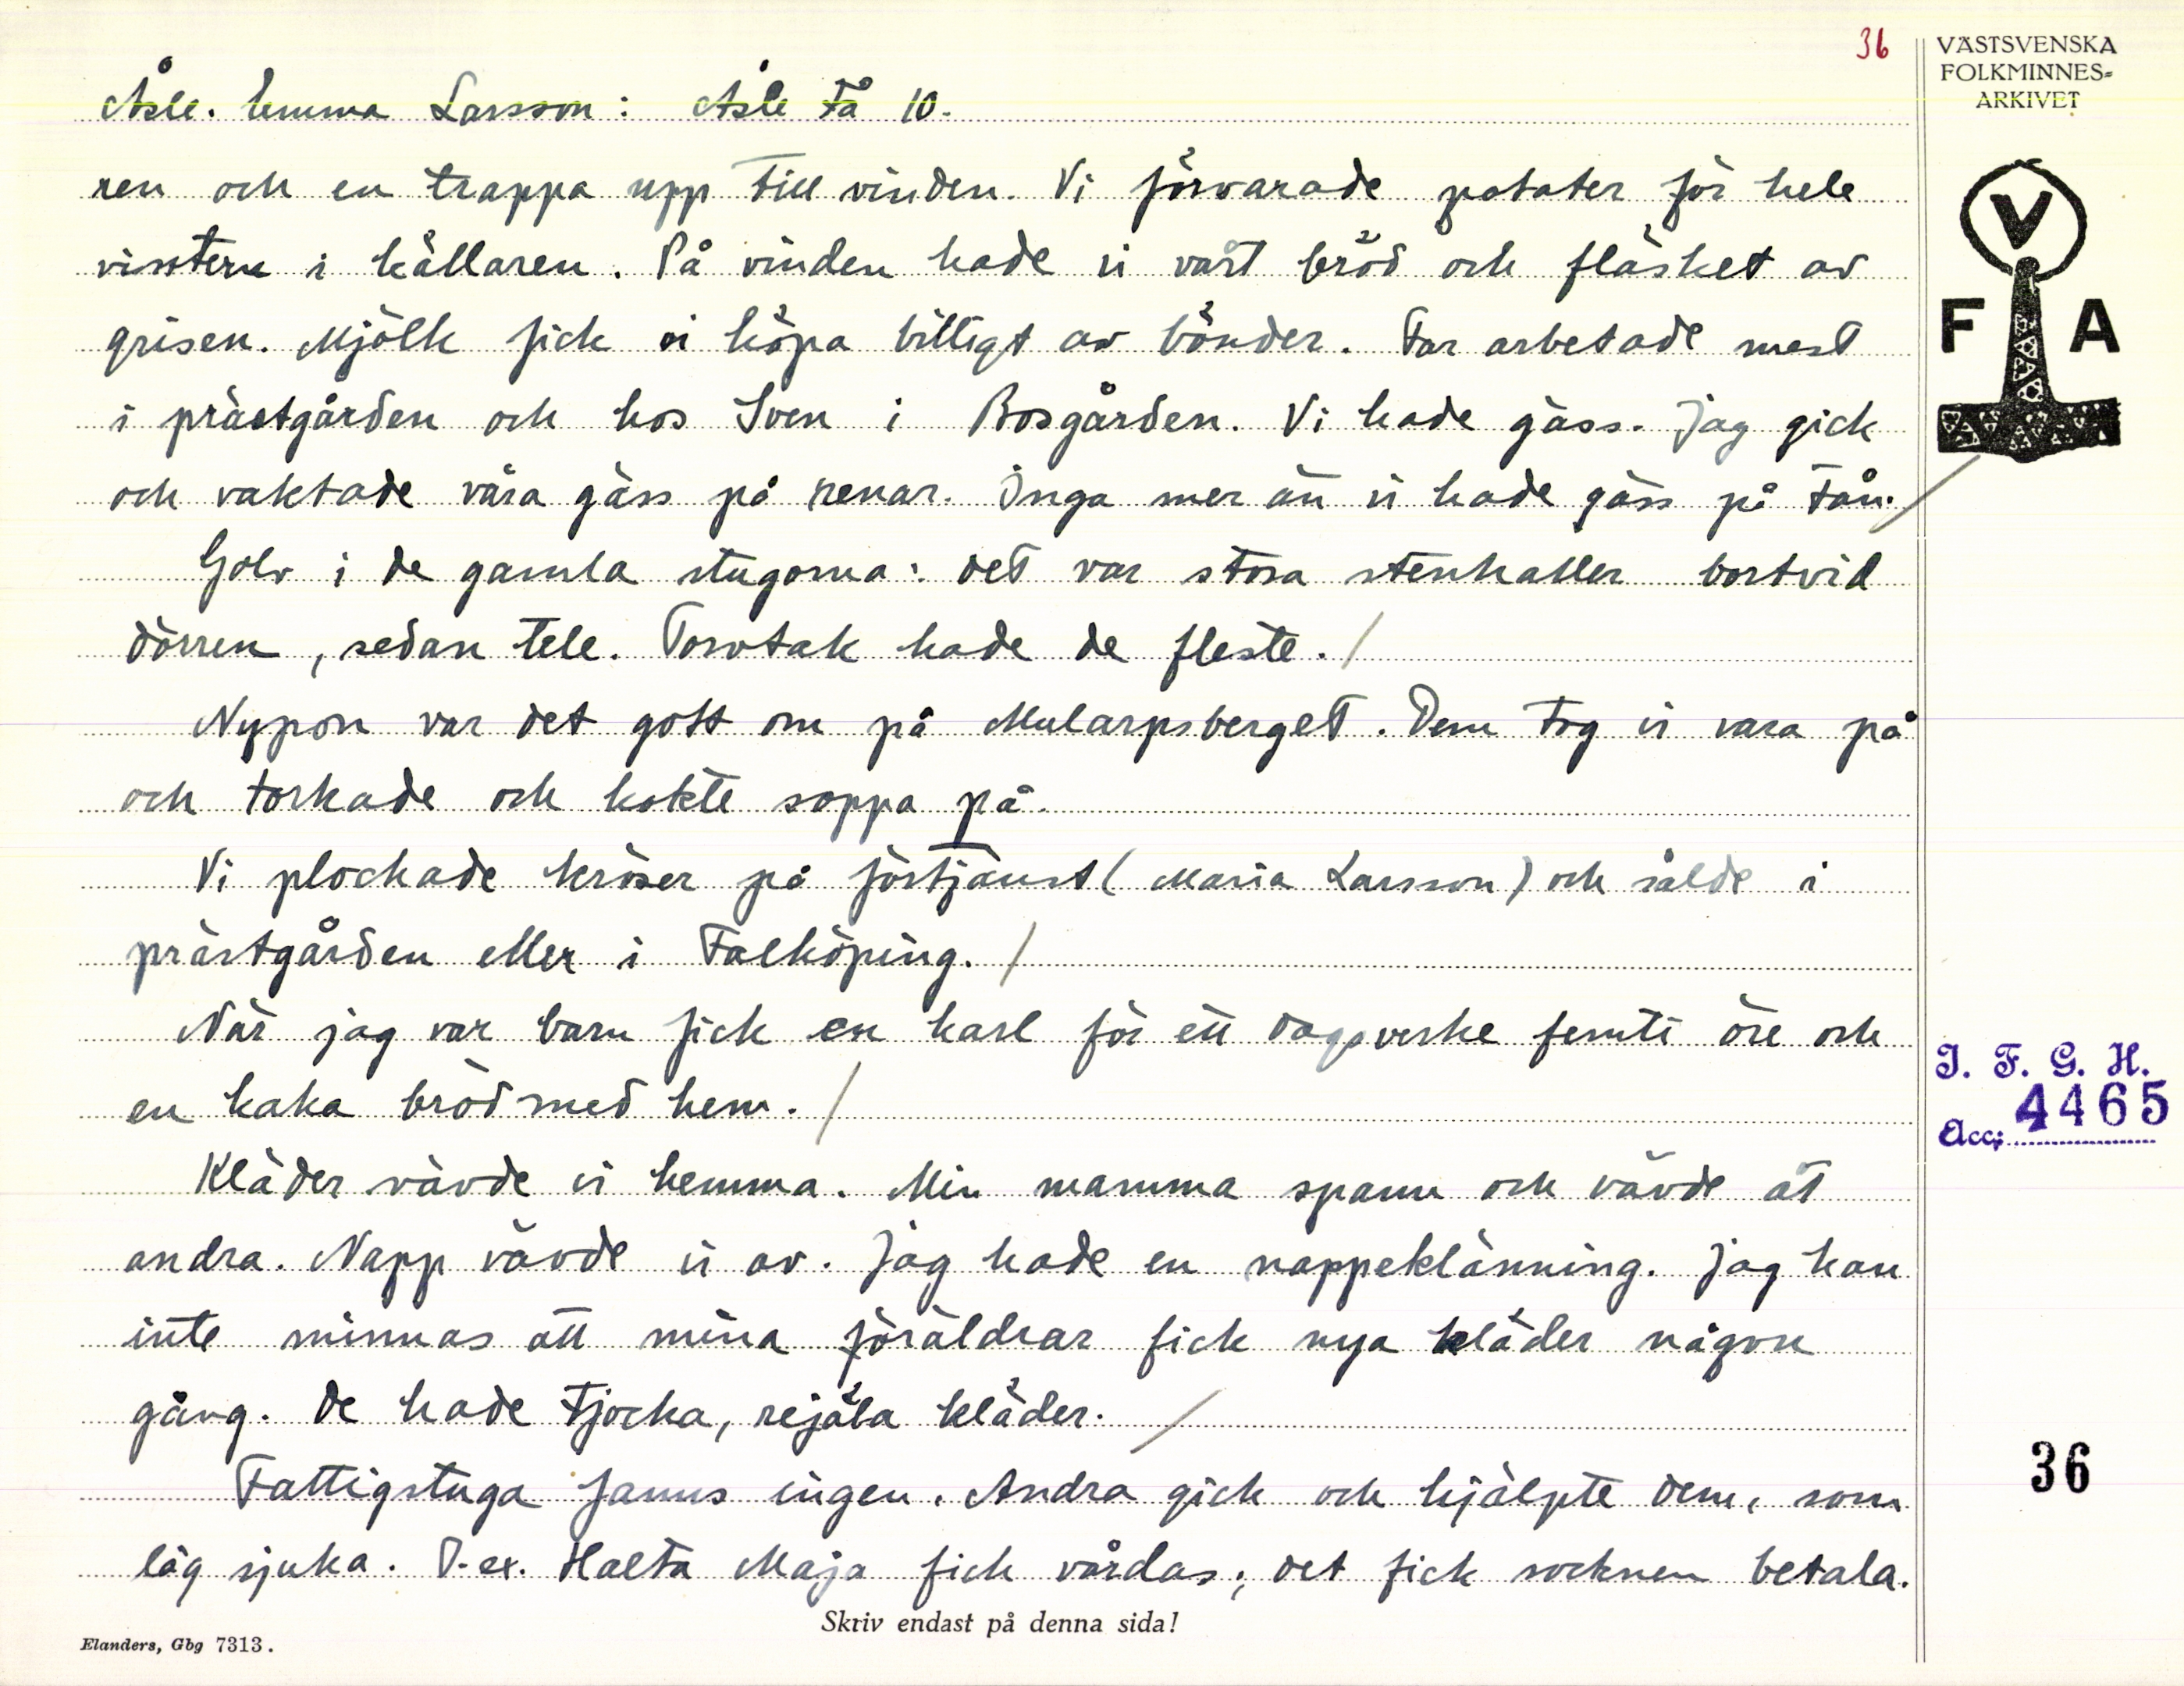 36
VÄSTSVENSKA
FOLKMINNES=
ARKIVET
V
F A
Åsle. Emma Larsson: Åsle Tå 10.
ren och en trappa upp till vinden. Vi förvarade potater för hele
vintern i källaren. På vinden hade vi vårt bröd och fläsket av
grisen. Mjölk fick vi köpa billigt av bönder. Far arbetade mest
i prästgården och hos Sven i Bosgården. Vi hade gäss. Jag gick
och vaktade våra gäss på renar. Inga mer än vi hade gäss på Tån. /
Golv i de gamla stugorna: det var stora stenhaller bortvid
dörren, sedan tele. Torvtak hade de fleste. /
Nypon var det gott om på Mularpsberget. Dem tog vi vara på
och torkade och kokte soppa på.
Vi plockade kröser på förtjänst (Maria Larsson) och sålde i
prästgården eller i Falköping. /
När jag var barn fick en karl för ett dagsverke femti öre och
en kaka bröd med hem. /
Kläder vävde vi hemma. Min mamma spann och vävde åt
andra. Napp vävde vi av. Jag hade en nappeklänning. Jag kan
inte minnas att mina föräldrar fick nya kläder någon
gång. De hade tjocka, rejäla kläder. /
Fattigstuga fanns ingen. Andra gick och hjälpte dem, som
låg sjuka. T.ex. Halta Maja fick vårdas; det fick socknen betala.
I. F. G. H.
Acc; 4465
36
Skriv endast på denna sida!
Elanders, Gbg 7313.